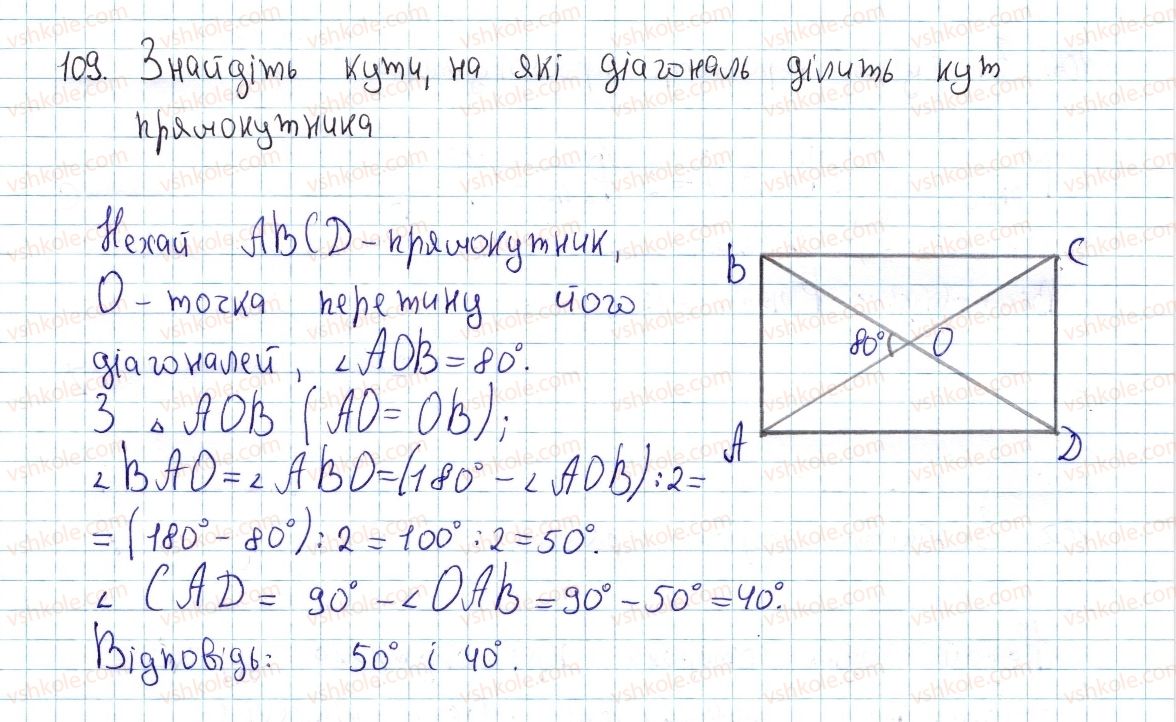 109. Знайдіть кути, на які діагональ ділить кут
прямокутника
Нехай ABCD - прямокутник,
O - точка перетину його
діагоналей, ∠AOB = 80°.
З △AOB (AO = OB);
∠BAO = ∠ABO = (180° - ∠AOB) : 2 =
= (180° - 80°) : 2 = 100° : 2 = 50°.
∠CAD = 90° - ∠OAB = 90° - 50° = 40°.
Відповідь: 50° і 40°.
B C
80° O
A D
vshkole.com